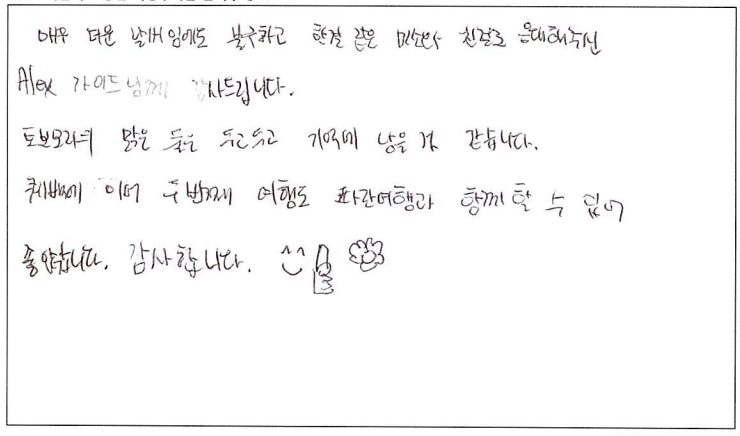 매우 더운 날씨임에도 불구하고 한결 같은 미소와 친절로 응대해주신
Alex 가이드님께 감사드립니다.
토보모리의 맑은 물은 두고두고 기억에 남을 것 같습니다.
퀘벡에 이어 두번째 여행도 파란여행과 함께 할 수 있어
좋았습니다. 감사합니다.